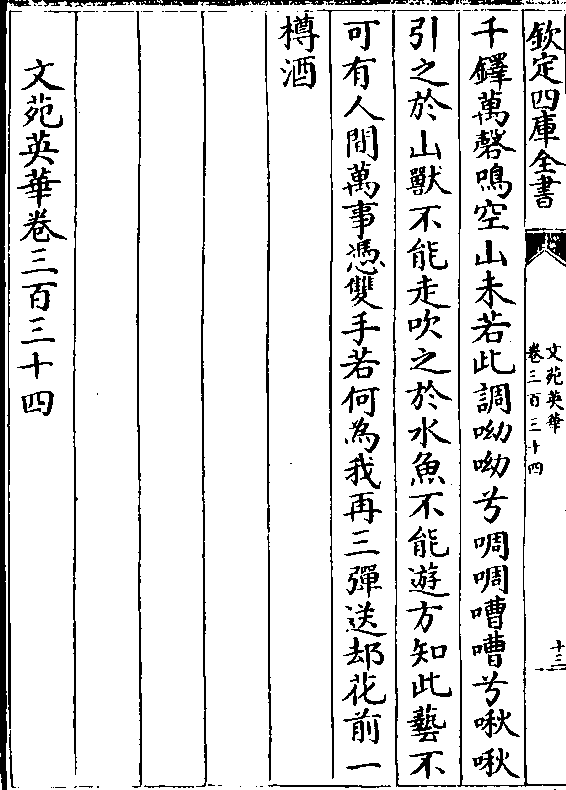 欽定四庫全書
文苑英華
卷三百三十四
十三
千鐸萬磬鳴空山未若此調呦呦兮啁啁嘈嘈兮啾啾
引之於山獸不能走吹之於水魚不能遊方知此藝不
可有人間萬事憑雙手若何為我再三彈送却花前一
樽酒
文苑英華卷三百三十四